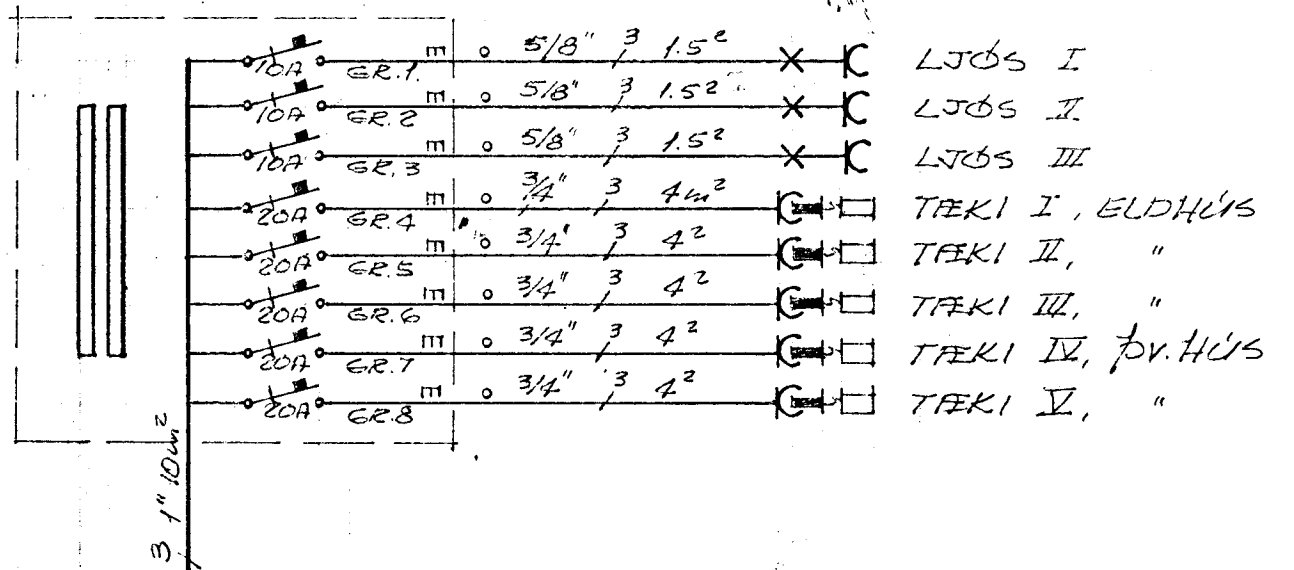 10A GR.1. E 5/8" 3 1.5² LJÓS I
10A GR.2 E 5/8" 3 1.5² LJÓS II
10A GR.3 E 5/8" 3 1.5² LJÓS III
20A GR.4 E 3/4" 3 4m² TÆKI I, ELDHÚS
20A GR.5 E 3/4" 3 4² TÆKI II, "
20A GR.6 E 3/4" 3 4² TÆKI III, "
20A GR.7 E 3/4" 3 4² TÆKI IV, ÞV.HÚS
20A GR.8 E 3/4" 3 4² TÆKI V, "
3 1" 10m²